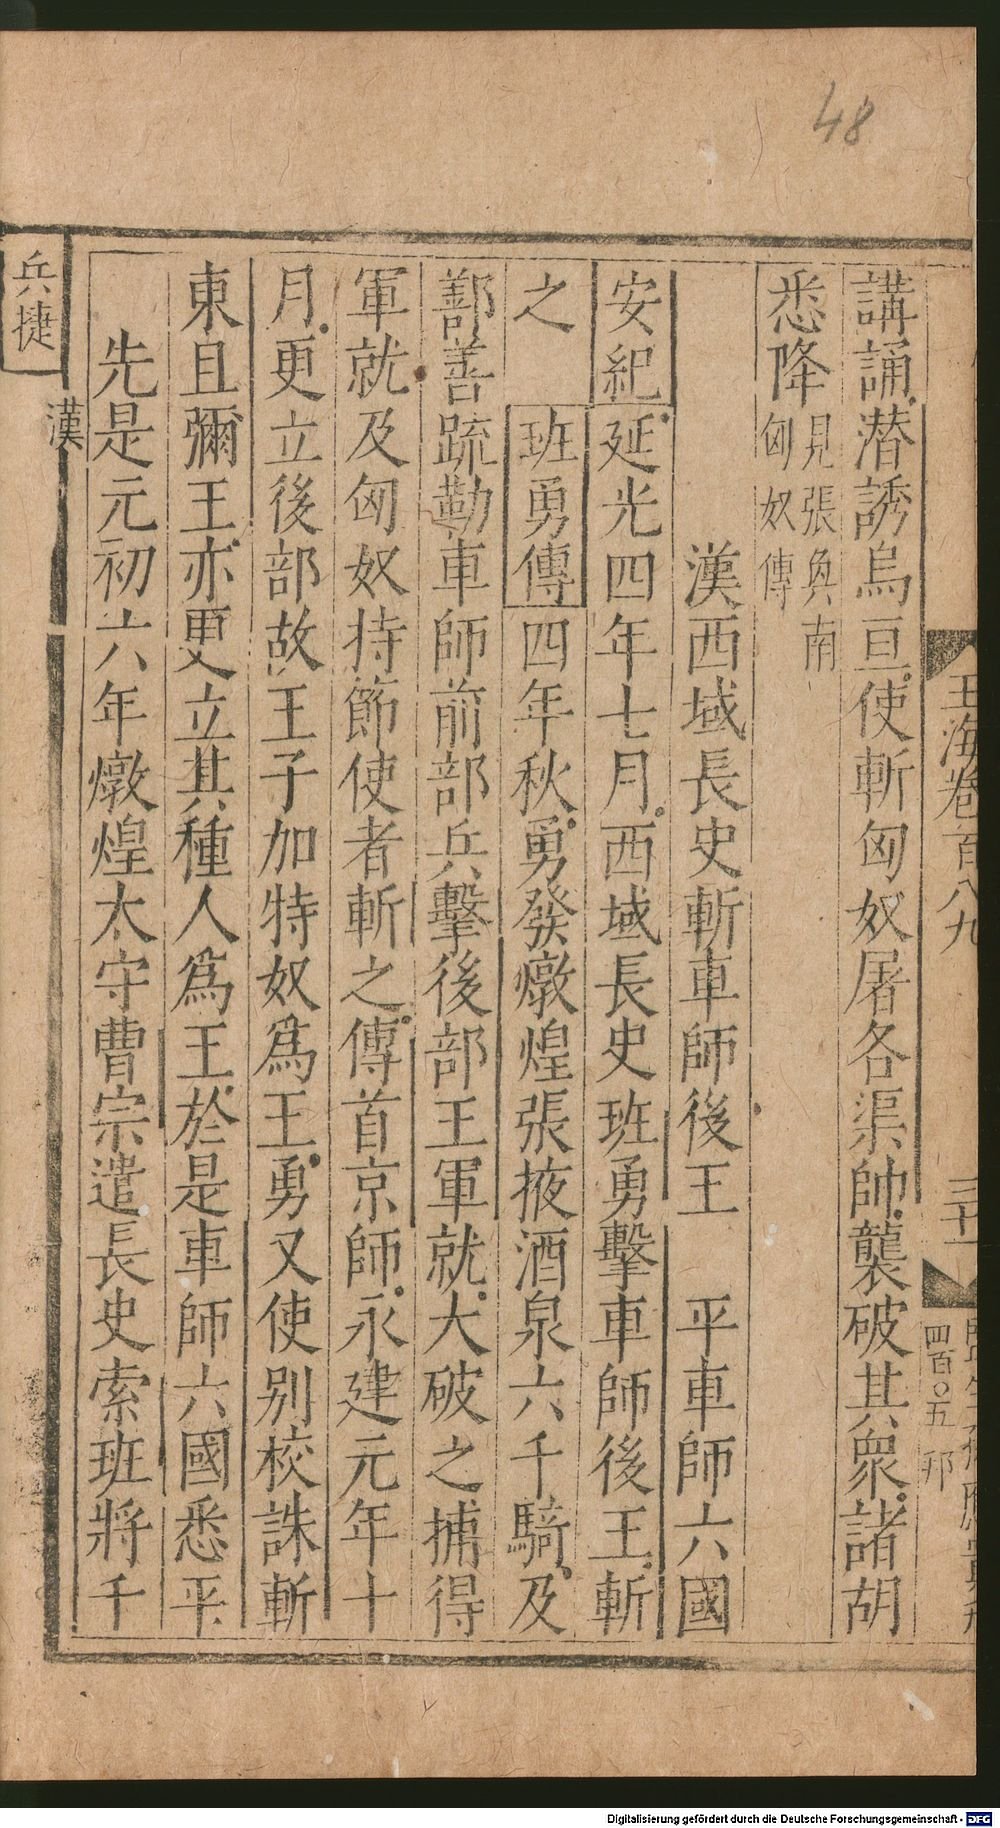 48
講誦潜誘烏亘使斬匈奴屠各渠帥襲破其衆諸胡
悉降見張奐南匈奴傳
漢西域長史斬車師後王 平車師六國
安紀延光四年七月西域長史班勇擊車師後王斬
之 班勇傳四年秋勇發燉煌張掖酒泉六千騎及
鄯善疏勒車師前部兵擊後部王軍就大破之捕得
軍就及匈奴持節使者斬之傳首京師永建元年十
月更立後部故王子加特奴爲王勇又使別校誅斬
東且彌王亦更立其種人爲王於是車師六國悉平
先是元初六年燉煌太守曹宗遣長史索班將千
玉海卷百八九
三十一
四百〇五
兵捷
漢
Digitalisierung gefördert durch die Deutsche Forschungsgemeinschaft - DFG